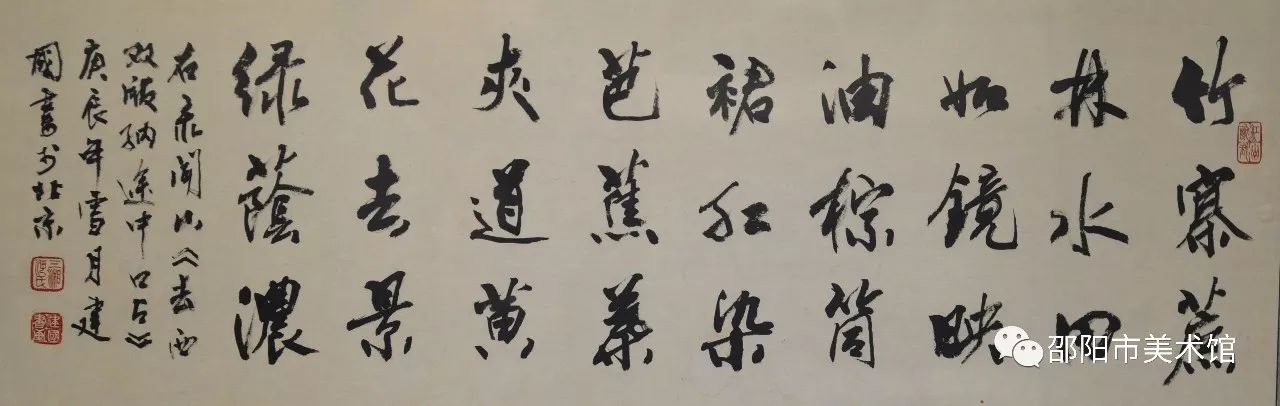 竹寨蔗
林水田
如鏡映
油棕筒
裙红染
芭蕉葉
夾道黄
花去景
绿蔭濃
右录闻山《去西
双版纳途中口占》
庚辰年雪月建
國書於北京
建國書画
邵阳市美术馆